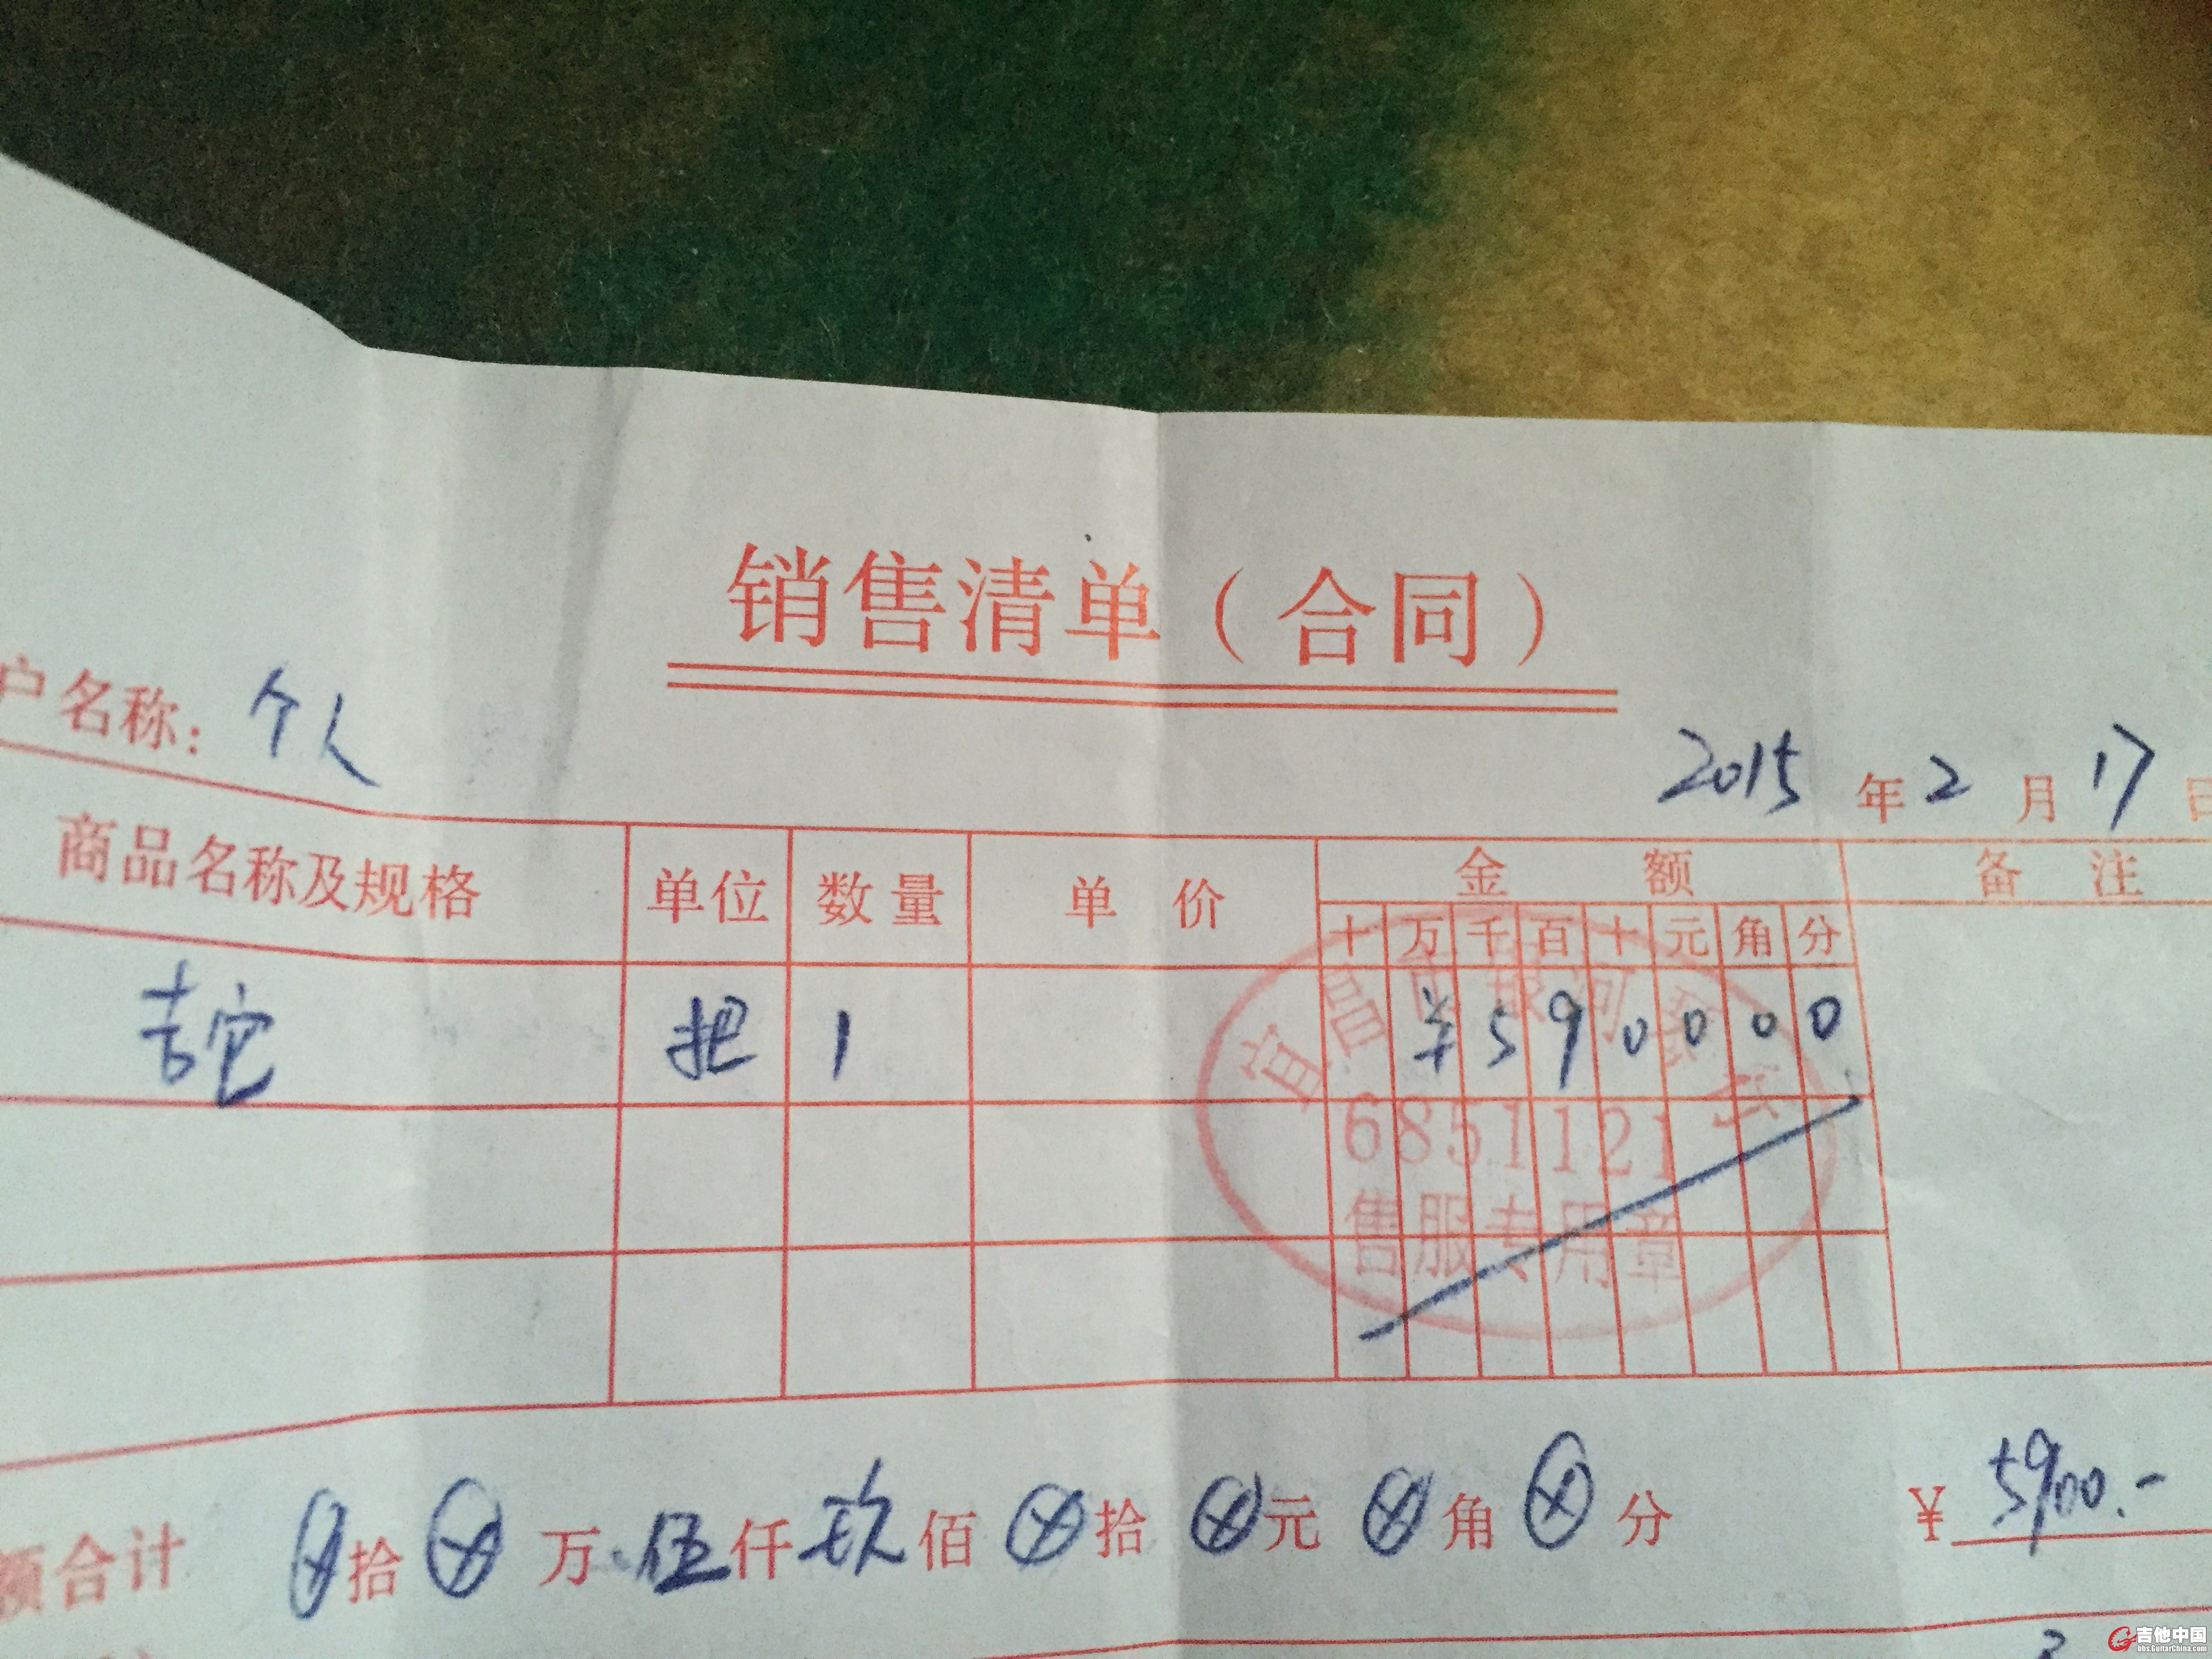 销售清单（合同）
户名称：个人
2015年2月17日
商品名称及规格 单位 数量 单价 金额 备注
十 万 千 百 十 元 角 分
吉它 把 1 ¥590000
宜昌市银河
6851121
售服专用章
额合计 ⊗拾⊗万伍仟玖佰⊗拾⊗元⊗角⊗分 ¥5900.-
吉他中国
bbs.GuitarChina.com